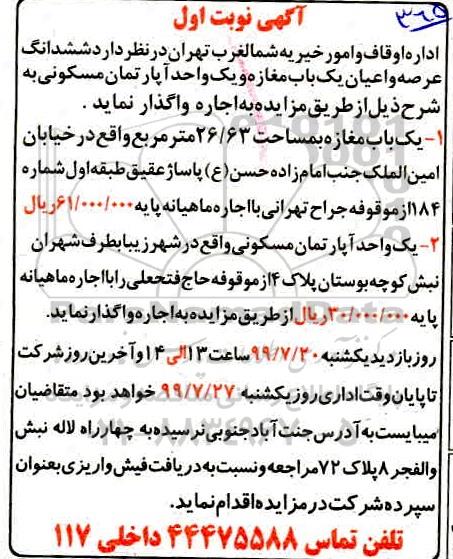 ۳۶۵
آگهی نوبت اول
اداره اوقاف و امور خیریه شمالغرب تهران در نظر دارد ششدانگ
عرصه و اعیان یک باب مغازه و یک واحد آپارتمان مسکونی به
شرح ذیل از طریق مزایده به اجاره واگذار نماید .
۱- یک باب مغازه بمساحت ۲۶/۶۳ متر مربع واقع در خیابان
امین الملک جنب امام زاده حسن (ع) پاساژ عقیق طبقه اول شماره
۱۸۴ از موقوفه جراح تهرانی با اجاره ماهیانه پایه ۶۱/۰۰۰/۰۰۰ ریال
۲- یک واحد آپارتمان مسکونی واقع در شهر زیبا بطرف شهران
نبش کوچه بوستان پلاک ۴ از موقوفه حاج فتحعلی را با اجاره ماهیانه
پایه ۳۰/۰۰۰/۰۰۰ ریال از طریق مزایده به اجاره واگذار نماید.
روز بازدید یکشنبه ۹۹/۷/۲۰ ساعت ۱۳ الی ۱۴ و آخرین روز شرکت
تا پایان وقت اداری روز یکشنبه ۹۹/۷/۲۷ خواهد بود متقاضیان
میبایست به آدرس جنت آباد جنوبی نرسیده به چهار راه لاله نبش
والفجر ۸ پلاک ۷۲ مراجعه و نسبت به دریافت فیش واریزی بعنوان
سپرده شرکت در مزایده اقدام نماید.
تلفن تماس ۴۴۴۷۵۵۸۸ داخلی ۱۱۷